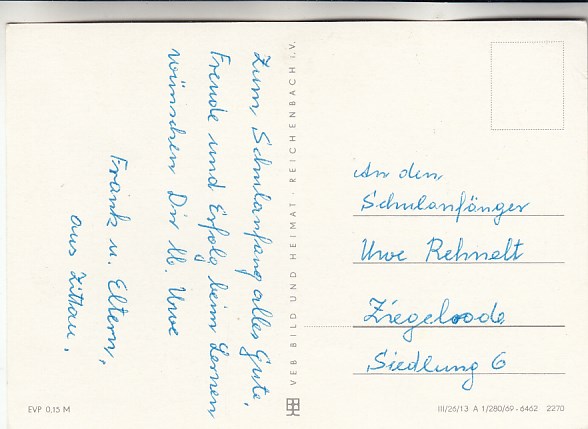 Zum Schulanfang alles Gute,
Freude und Erfolg beim Lernen
wünschen Dir lb. Uwe
Frank u. Eltern,
aus Zittau.
VEB BILD UND HEIMAT · REICHENBACH i.V.
An den
Schulanfänger
Uwe Rehnelt
Ziegelrode
Siedlung 6
EVP 0,15 M
III/26/13 A 1/280/69-6462 2270